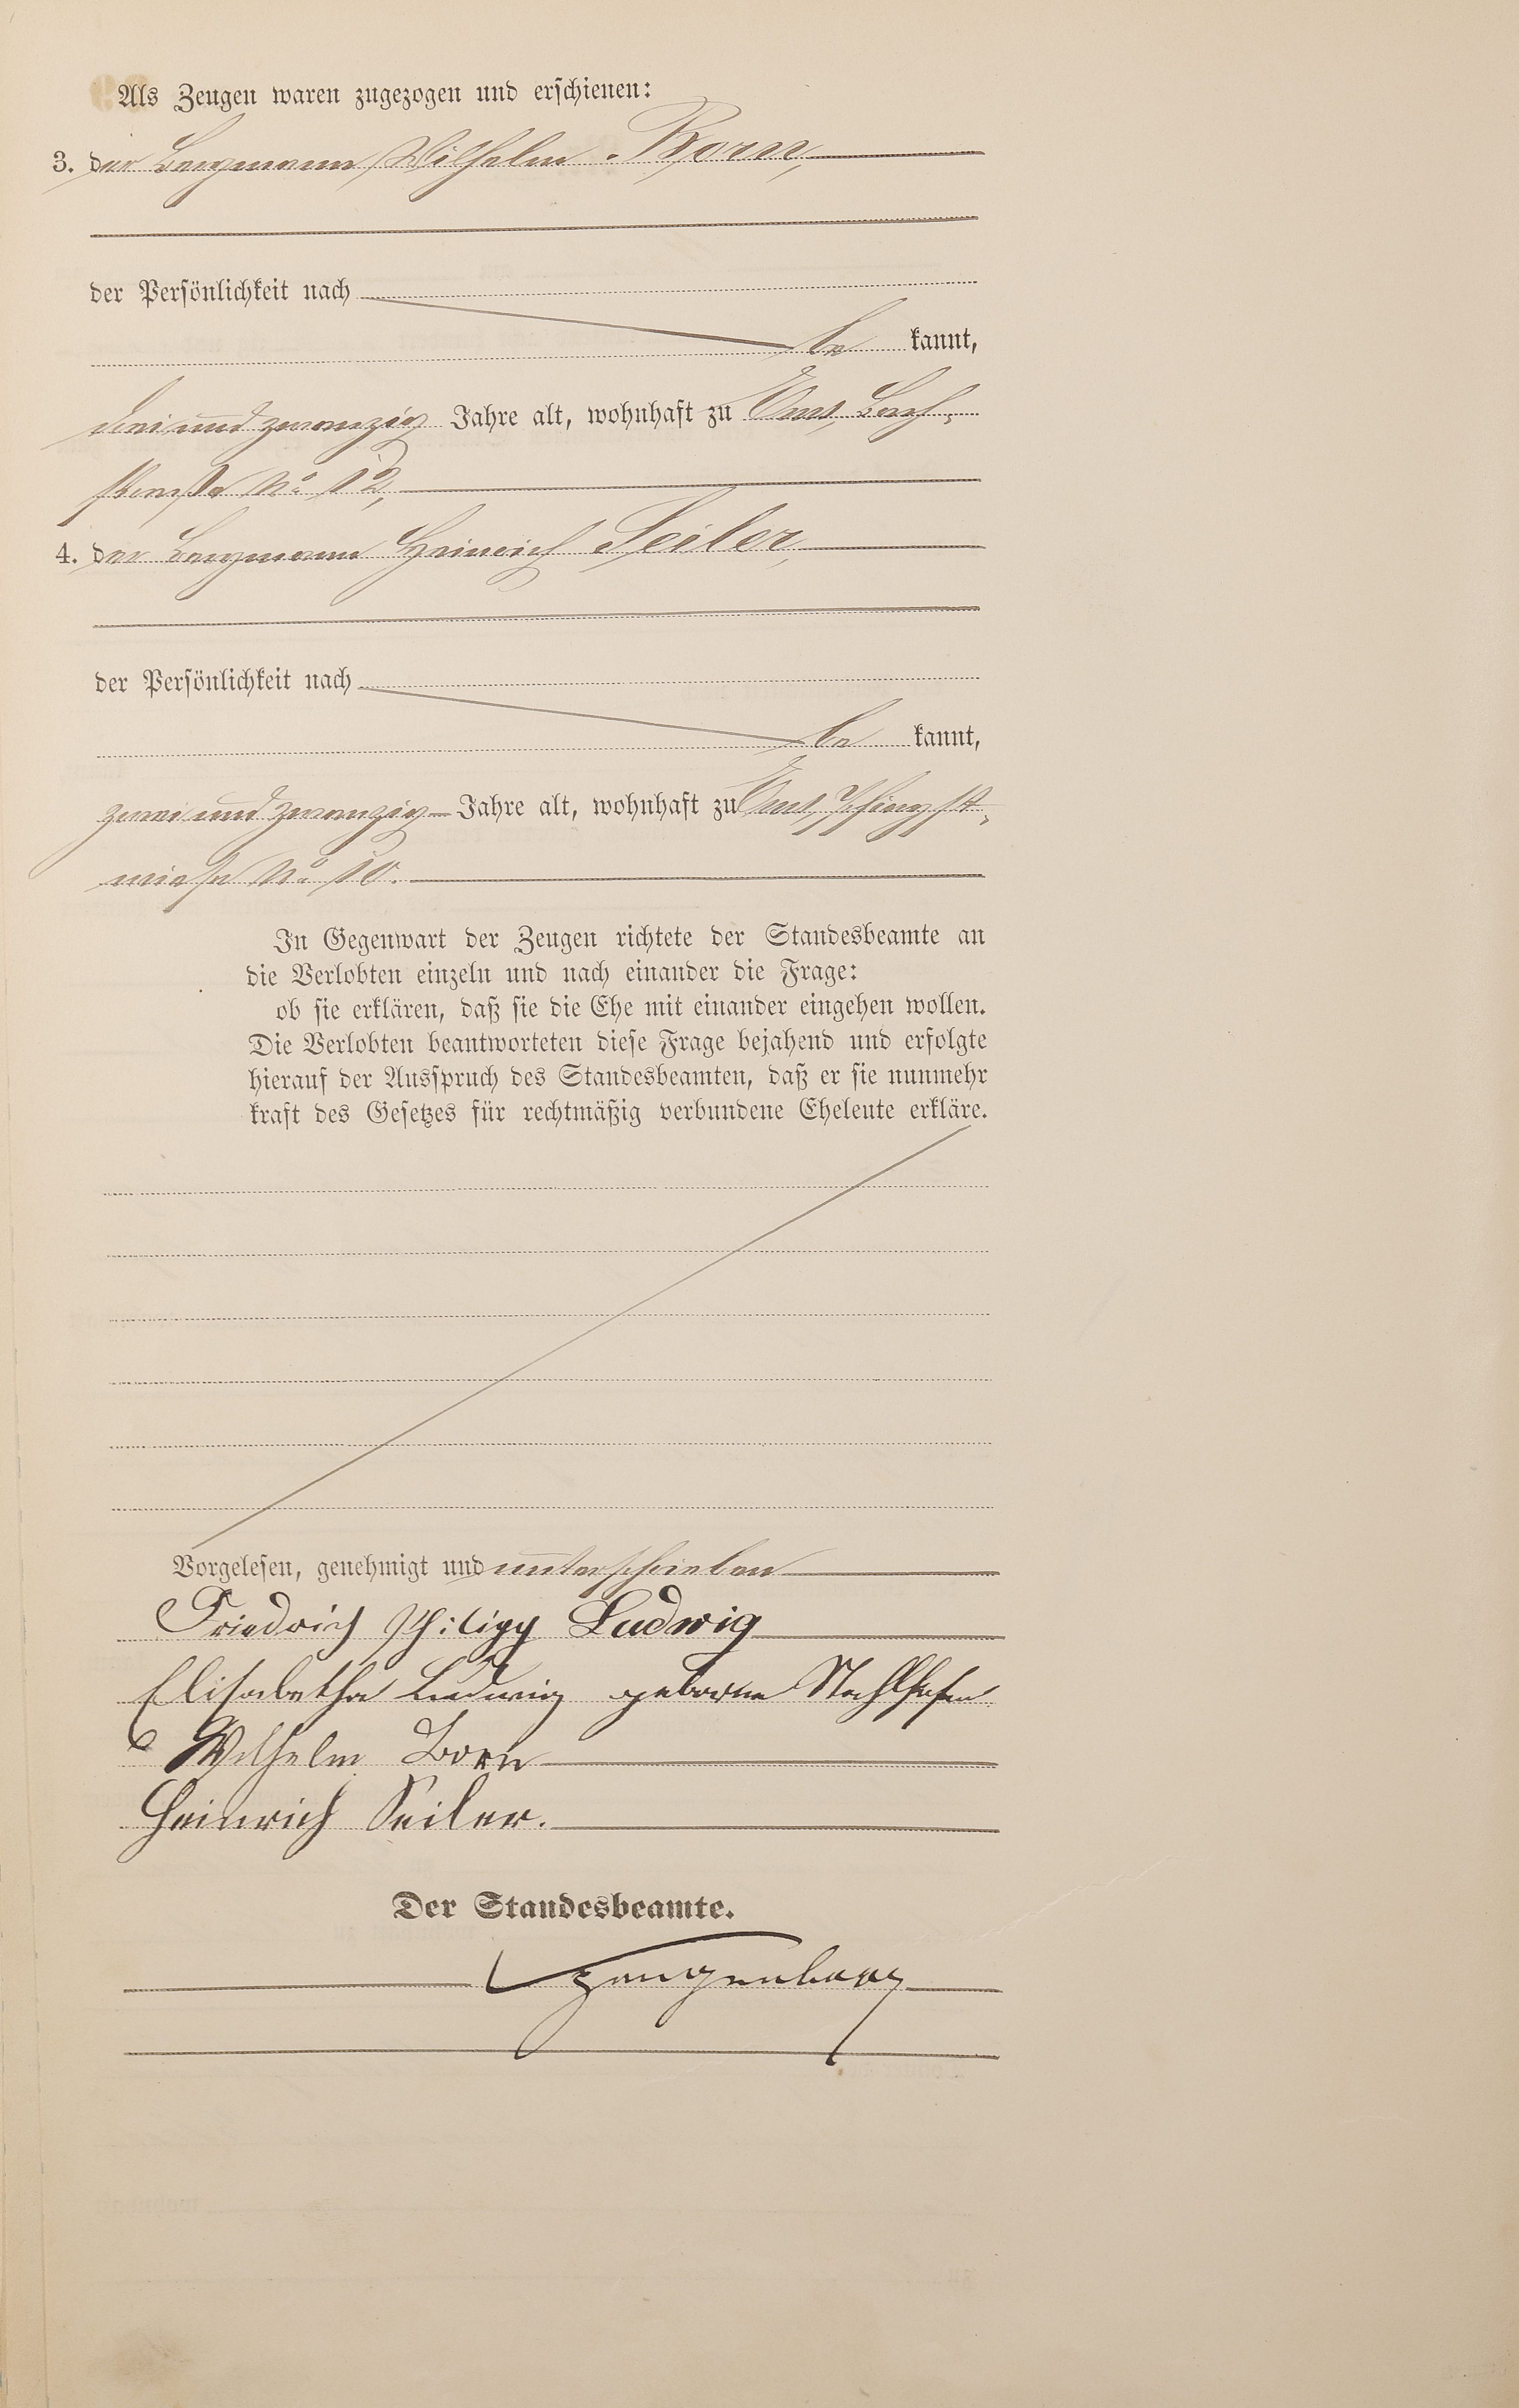 Als Zeugen waren zugezogen und erschienen:
3. der Bergmann Wilhelm Born,
der Persönlichkeit nach
be kannt,
drei und zwanzig Jahre alt, wohnhaft zu Ems, Bach-
straße No 12,
4. der Bergmann Heinrich Seiler,
der Persönlichkeit nach
be kannt,
zwei und zwanzig Jahre alt, wohnhaft zu Ems, Pfingst-
wiese No 10.
In Gegenwart der Zeugen richtete der Standesbeamte an
die Verlobten einzeln und nach einander die Frage:
ob sie erklären, daß sie die Ehe mit einander eingehen wollen.
Die Verlobten beantworteten diese Frage bejahend und erfolgte
hierauf der Ausspruch des Standesbeamten, daß er sie nunmehr
kraft des Gesetzes für rechtmäßig verbundene Eheleute erkläre.
Vorgelesen, genehmigt und unterschrieben
Friedrich Philipp Ludwig
Elisabetha Ludwig geborne
Wilhelm Born
Heinrich Seiler.
Der Standesbeamte.